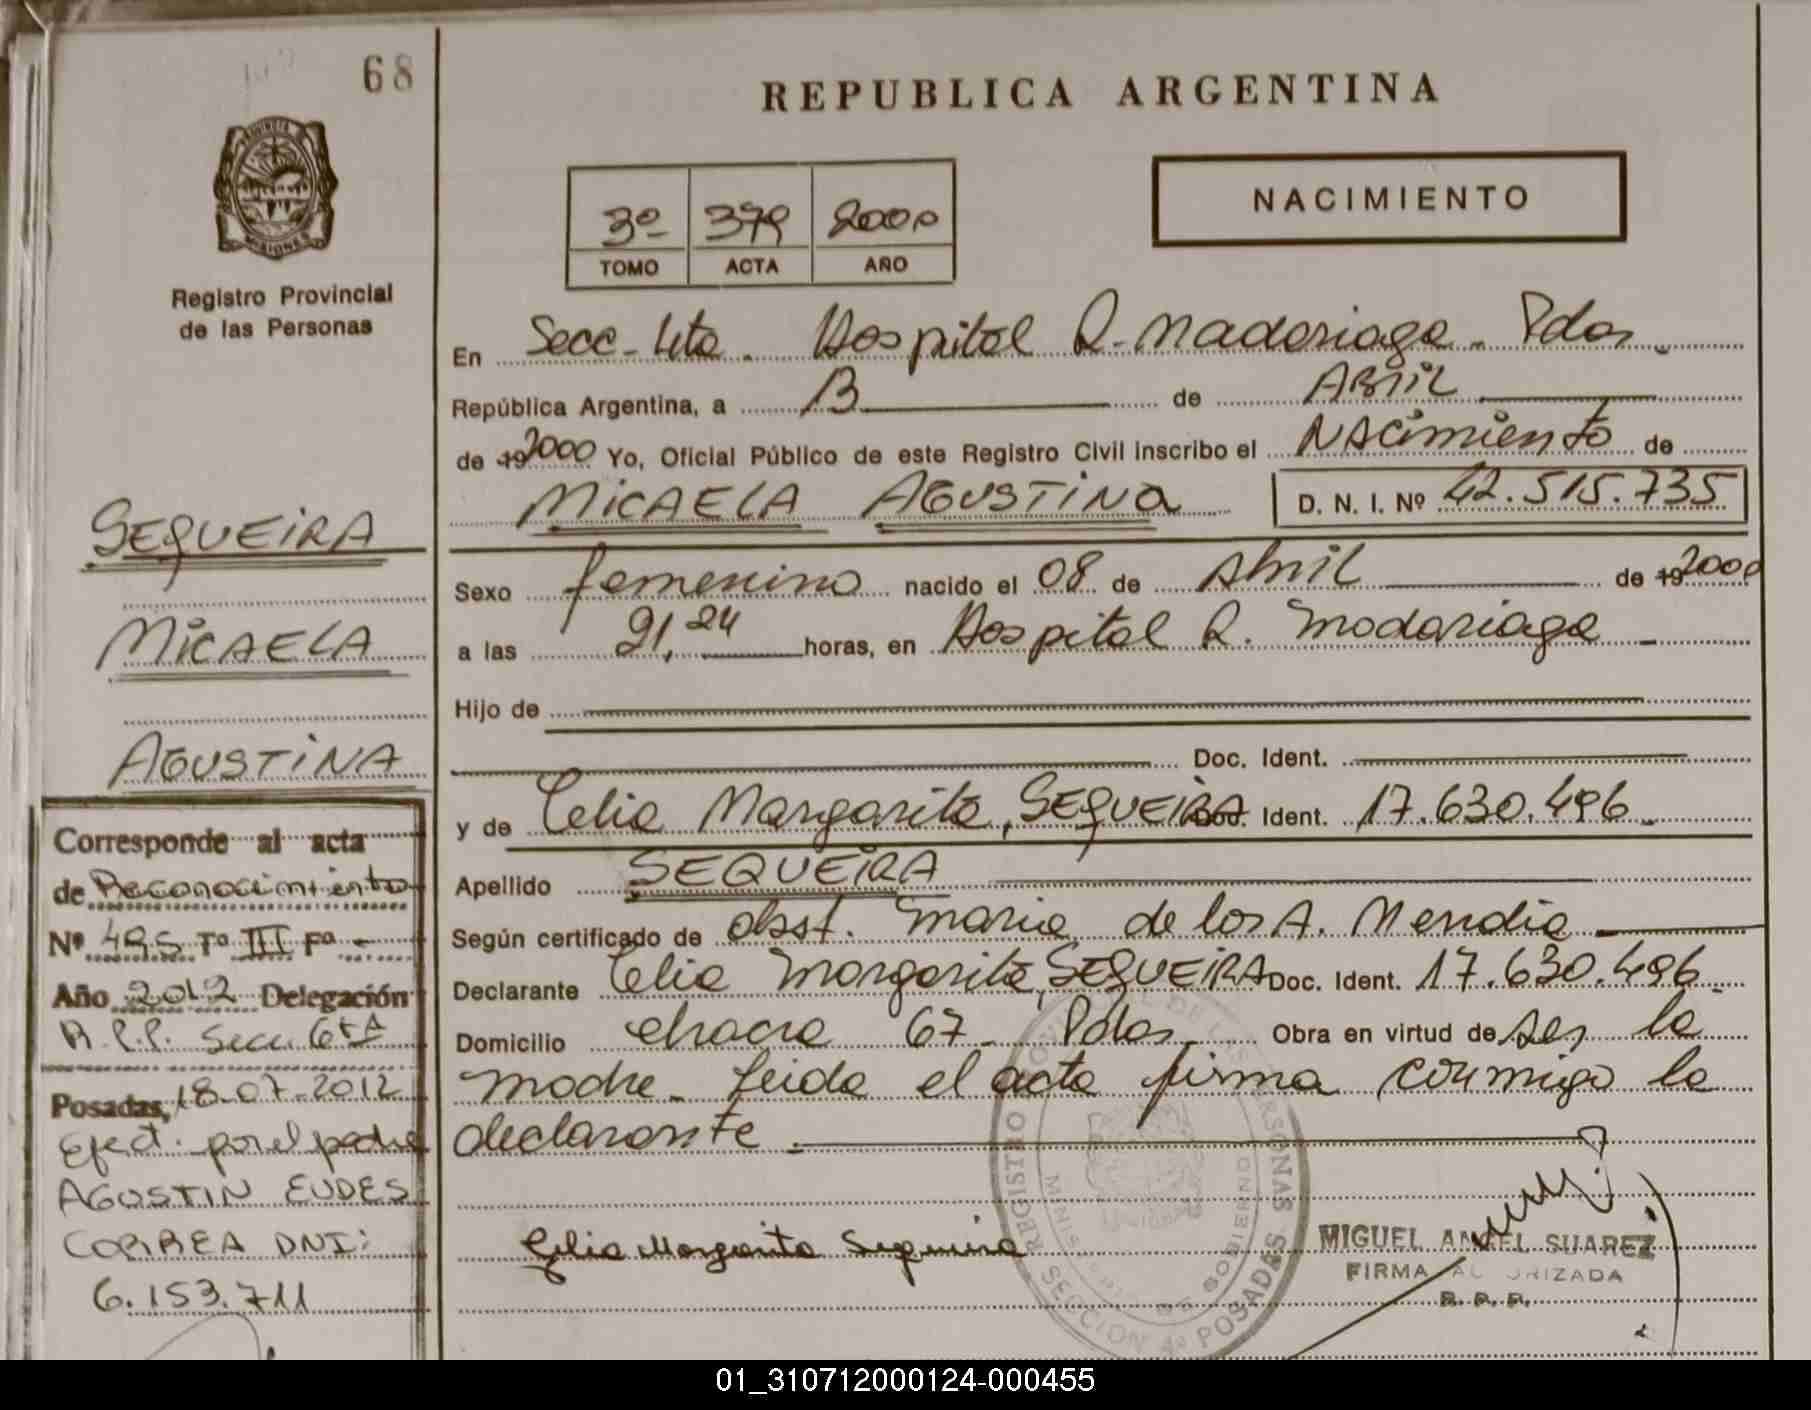 68
PROVINCIA DE
MISIONES
Registro Provincial
de las Personas
SEQUEIRA
MICAELA
AGUSTINA
Corresponde al acta
de Reconocimiento
Nº 495 Tº III Fº -
Año 2012 Delegación
R.P.P. Secc. 6tA
Posadas, 18-07-2012
Efect. por el padre
AGUSTIN EUDES
CORREA DNI:
6.153.711
REPUBLICA ARGENTINA
3º 379 2000
TOMO ACTA AÑO
NACIMIENTO
En Secc-4ta. Hospital R. Madariaga - Pdas.
República Argentina, a 13 de ABRIL
de 19 2000 Yo, Oficial Público de este Registro Civil inscribo el NACIMIENTO de
MICAELA AGUSTINA D. N. I. Nº 42.515.735
Sexo femenino nacido el 08 de Abril de 19 2000
a las 21,24 horas, en Hospital R. Madariaga -
Hijo de
Doc. Ident.
y de Celia Margarita, SEQUEIRA Doc. Ident. 17.630.496
Apellido SEQUEIRA
Según certificado de obst. Maria de los A. Mendia
Declarante Celia Margarita, SEQUEIRA Doc. Ident. 17.630.496
Domicilio chacra 67 - Pdas. Obra en virtud de ser la
madre. Leida el acta firma conmigo la
declarante.
Celia Margarita Sequeira
REGISTRO PROVINCIAL DE LAS PERSONAS
MINISTERIO DE GOBIERNO
SECCION 4ª POSADAS
MIGUEL ANGEL SUAREZ
FIRMA AUTORIZADA
R. P. P.
01_310712000124-000455